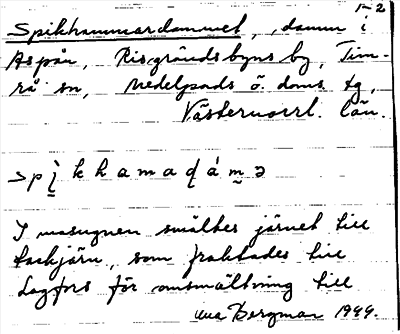 1-2
Spikhammardammet, damm i
Aspån, Risgrändsbyns by, Tim-
rå sn, Medelpads ö. doms. tg,
Västernorrl. län.
I masugnen smältes järnet till
tackjärn, som fraktades till
Lagfors för omsmältning till
Bergman 1949.